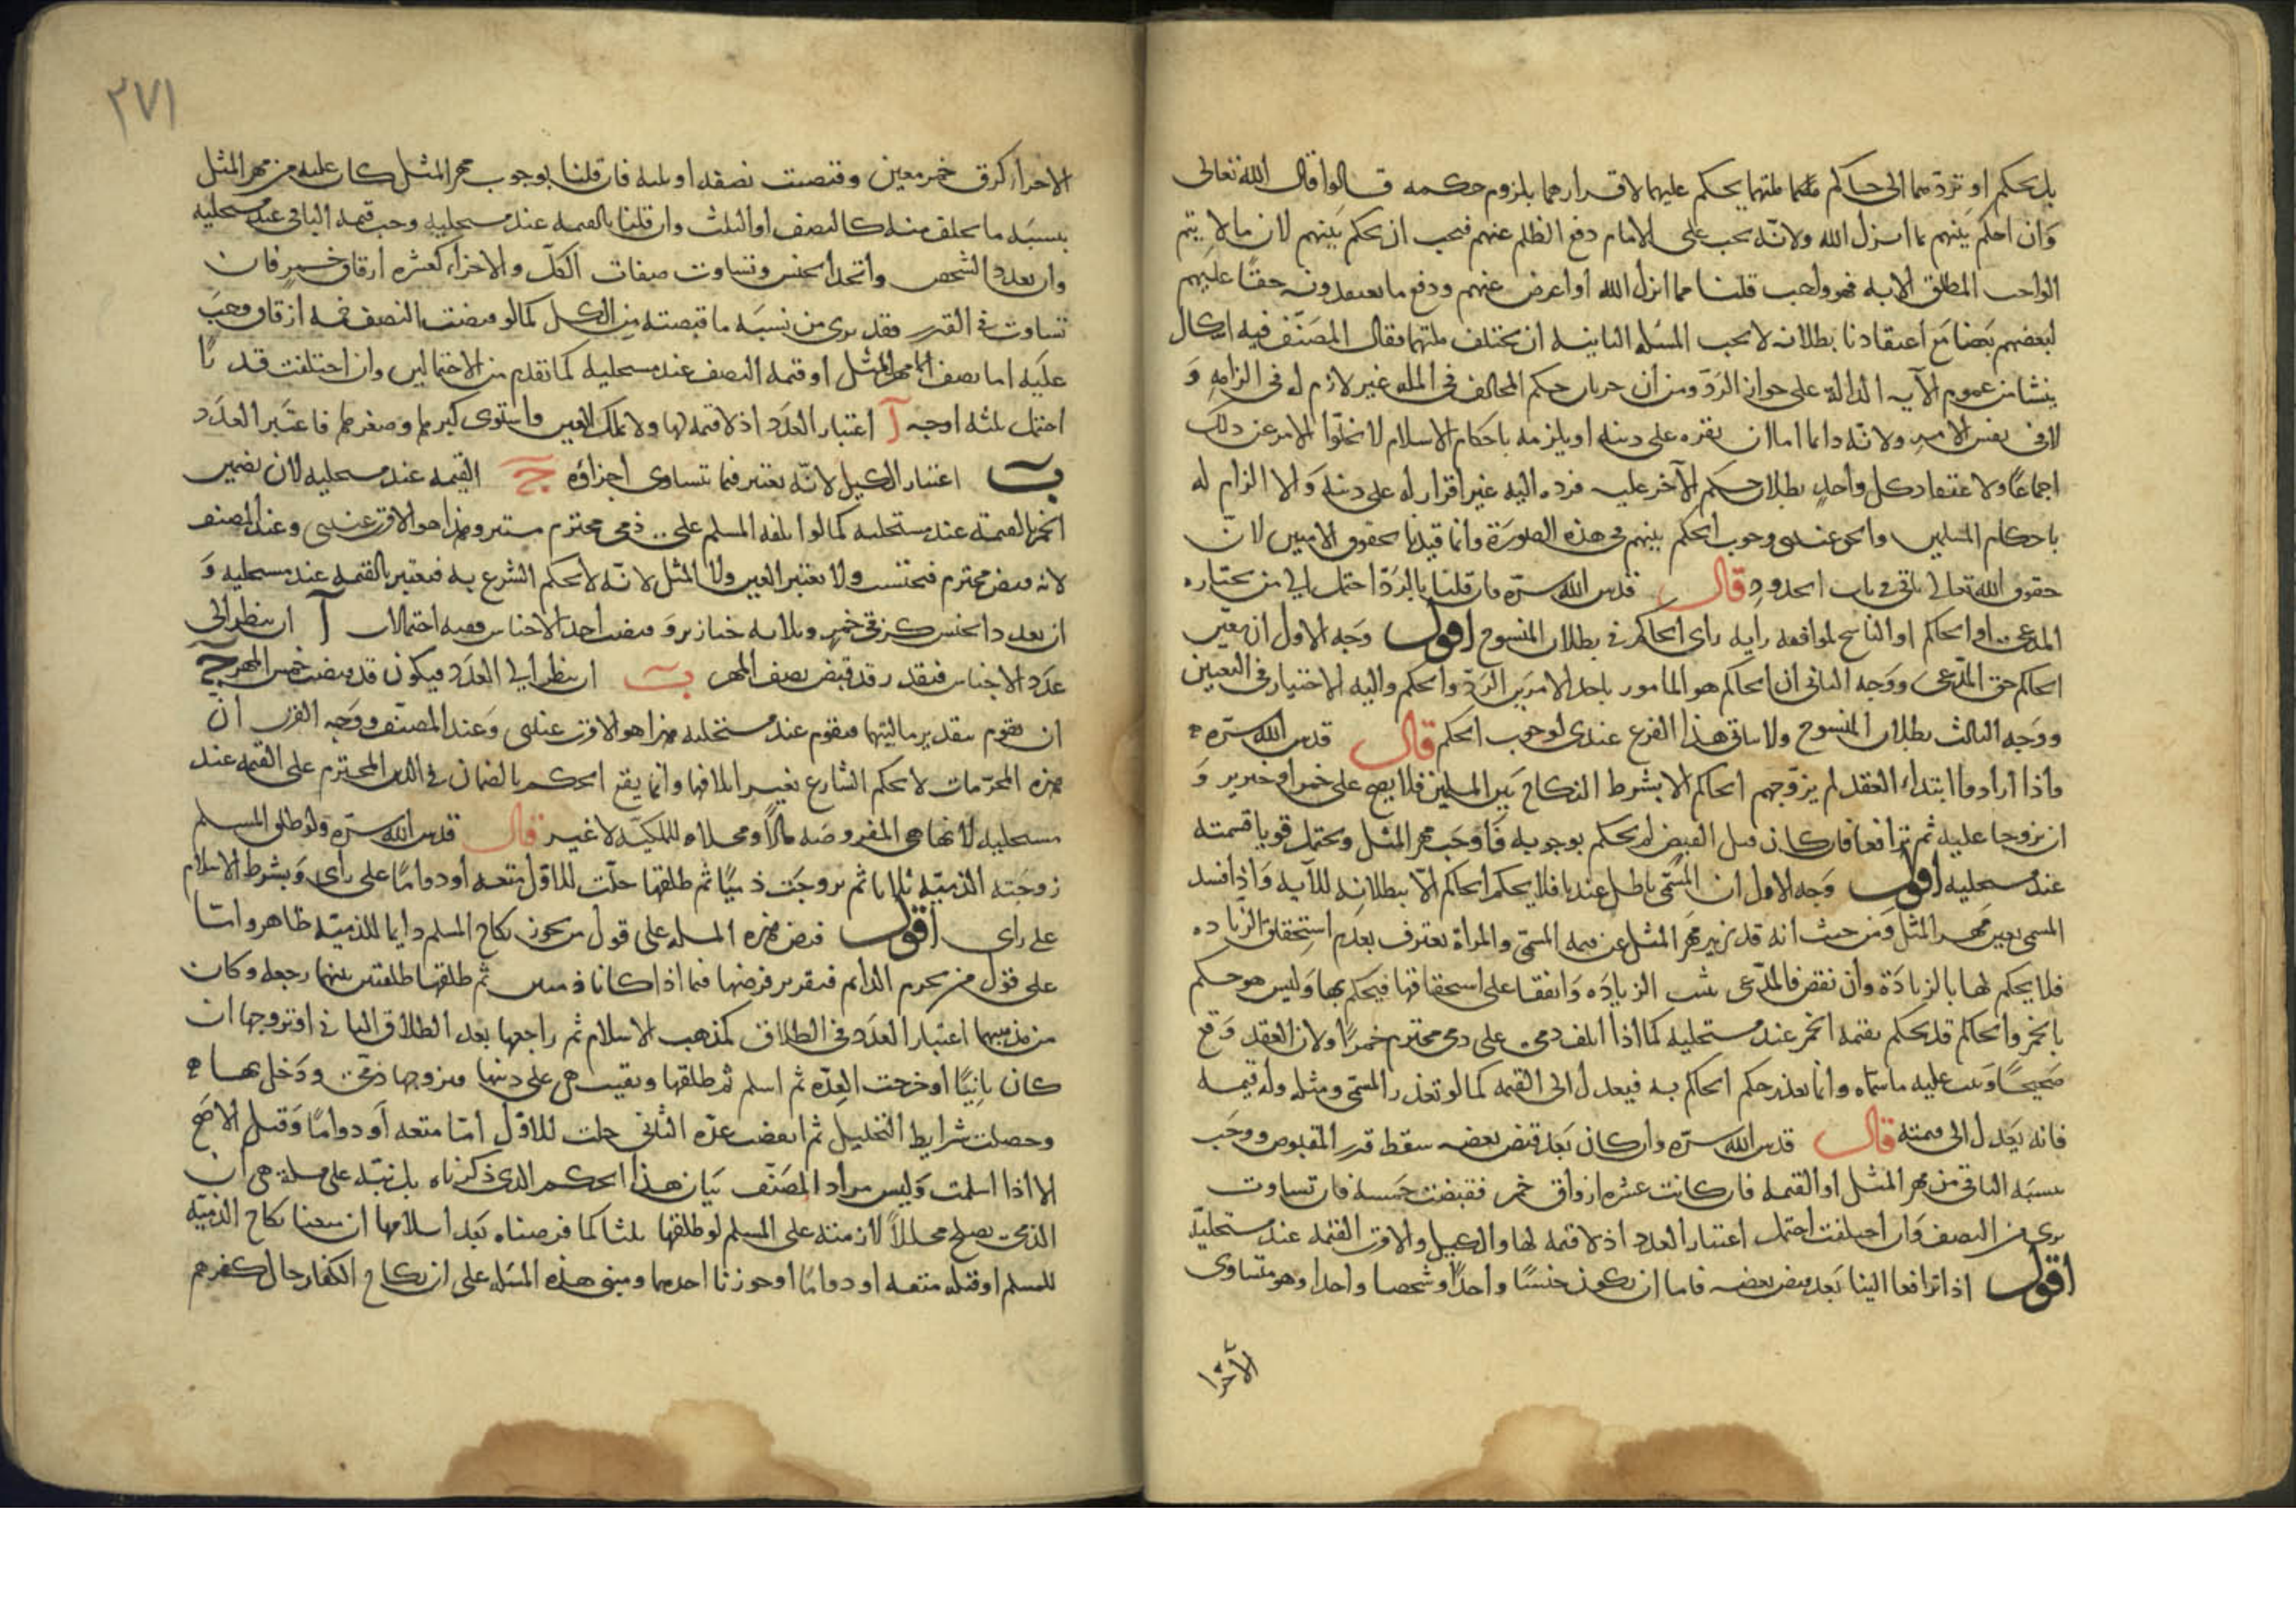 بل يحكم او تردهما الى حاكم ملتهما يحكم عليهما لاقرارهما بلزوم حكمه قالوا قال الله تعالى
وان احكم بينهم بما انزل الله ولانه يجب على الامام دفع الظلم عنهم فيجب ان يحكم بينهم لان ما لا يتم
الواجب المطلق الا به فهو واجب قلنا مما انزل الله او اعرض عنهم ودفع ما يعتقدونه حقا عليهم
لبعضهم بعضا مع اعتقادنا بطلانه لا يجب المسئلة الثانية ان يختلف ملتهما فقال المصنف فيه اشكال
ينشا من عموم الآية الدالة على جواز الرد ومن ان جريان حكم المخالف في الملة غير لازم له في الزامه و
لا في نفس الامر ولانه دائما اما ان نقره على دينه او يلزمه باحكام الاسلام لا يخلوا الامر عن ذلك
اجماعا ولاعتقاد كل واحد بطلان حكم الآخر عليه فرده اليه غير اقرار له على دينه ولا الزام له
باحكام المسلمين والحق عندي وجوب الحكم بينهم في هذه الصورة وانما قيدنا بحقوق الادميين لان
حقوق الله تعالى ياتي في باب الحدود قال قدس الله سره فان قلنا بالرد احتمل الى من يختاره
المدعي او الحاكم او الناسخ لموافقة رايه راى الحاكم في بطلان المنسوخ اقول وجه الاول ان تعيين
الحاكم حق المدعي ووجه الثاني ان الحاكم هو المامور باحد الامرين الرد والحكم واليه الاختيار في التعيين
ووجه الثالث بطلان المنسوخ ولا ياتي هذا الفرع عندي لوجوب الحكم قال قدس الله سره
واذا ارادوا ابتداء العقد لم يزوجهم الحاكم الا بشرط النكاح بين المسلمين فلا يصح على خمر او خنزير و
ان تزوجا عليه ثم ترافعا فان كان قبل القبض لم يحكم بوجوبه فاوجب مهر المثل ويحتمل قويا قيمته
عند مستحليه اقول وجه الاول ان المسمى باطل عندنا فلا يحكم الحاكم الا ببطلانه للآية واذا فسد
المسمى تعين مهر المثل ومن حيث انه قد يزيد مهر المثل عن قيمة المسمى والمراة تعترف بعدم استحقاق الزيادة
فلا يحكم لها بالزيادة وان نقص فالمدعي يثبت الزيادة واتفقا على استحقاقها فيحكم بها وليس هو حكم
بالخمر والحاكم قد يحكم بقيمة الخمر عند مستحليه كما اذا اتلف ذمي على ذمي محترم خمرا ولان العقد وقع
صحيحا وثبت عليه ما سماه وانما تعذر حكم الحاكم به فيعدل الى القيمة كما لو تعذر المسمى ومثله وله قيمة
فانه يعدل الى قيمته قال قدس الله سره وان كان بعد قبض بعضه سقط قدر المقبوض ووجب
بنسبة الباقي من مهر المثل او القيمة فان كانت عشرة ازقاق خمر فقبضت خمسة فان تساوت
برئ من النصف وان اختلفت احتمل اعتبار العدد اذ لا قيمة لها والكيل والاقرب القيمة عند مستحليه
اقول اذا ترافعا الينا بعد قبض بعضه فاما ان يكون جنسا واحدا وشخصا واحدا وهو متساوى
الاجزا
٢٧١
الاجزاء كزق خمر معين وقبضت نصفه او ثلثه فان قلنا بوجوب مهر المثل كان عليه من مهر المثل
بنسبة ما تخلف منه كالنصف او الثلث وان قلنا بالقيمة عند مستحليه وجب قيمة الباقي عند مستحليه
وان تعدد الشخص واتحد الجنس وتساوت صفات الكل والاجزاء كعشرة ازقاق خمر فان
تساوت في القدر فقد برئ من نسبة ما قبضته من الكل كما لو قبضت النصف خمسة ازقاق وجب
عليه اما نصف مهر المثل او قيمة النصف عند مستحليه كما تقدم من الاحتمالين وان اختلفت قدرا
احتمل ثلثة اوجه آ اعتبار العدد اذ لا قيمة لها ولا تملك العين واستوى كبيرهما وصغيرهما فاعتبر العدد
ب اعتبار الكيل لانه يعتبر فيما تتساوى اجزاؤه ج القيمة عند مستحليه لان تضمين
الخمر بالقيمة عند مستحليه كما لو اتلفه المسلم على ذمي محترم مستتر وهذا هو الاقرب عندي وعند المصنف
لانه قبض محترم فيحتسب ولا يعتبر العين ولا المثل لانه لا يحكم الشرع به فيعتبر بالقيمة عند مستحليه و
ان تعدد الجنس كزقي خمر وثلاثة خنازير وقبضت احد الاجناس ففيه احتمالات آ ان ينظر الى
عدد الاجناس فيقدر قد قبض نصف المهر ب ان ينظر الى العدد فيكون قد قبضت خمس المهر ج
ان يقوم بتقدير ماليتها فيقوم عند مستحليه وهذا هو الاقرب عندي وعند المصنف ووجه القرب ان
هذه المحرمات لا يحكم الشارع بغير اتلافها وانما يقع الحكم بالضمان في الذمي المحترم على القيمة عند
مستحليه لانها هي المفروضة مالا ومحلاه للملكية لا غير قال قدس الله سره ولو طلق المسلم
زوجته الذمية ثلاثا ثم تزوجت ذميا ثم طلقها حلت للاول متعة او دواما على راى وبشرط الاسلام
على راى اقول فرض هذه المسئلة على قول من يجوز نكاح المسلم دائما للذمية ظاهر واما
على قول من يحرم الدائم فتقرير فرضها فيما اذا كانا ذميين ثم طلقها طلقتين بينهما رجعة وكان
من مذهبهما اعتبار العدد في الطلاق كمذهب الاسلام ثم راجعها بعد الطلاق الثاني او تزوجها ان
كان باينا او خرجت العدة ثم اسلم ثم طلقها وبقيت هي على دينها فتزوجها ذمي ودخل بها
وحصلت شرايط التحليل ثم انقضت عدة الثاني حلت للاول اما متعة او دواما وقيل الاصح
الا اذا اسلمت وليس مراد المصنف بيان هذا الحكم الذي ذكرناه بل نبه على مسئلة هي ان
الذمي يصلح محللا لازمنته على المسلم لو طلقها ثلثا كما فرضناه بعد اسلامها ان منعنا نكاح الذمية
للمسلم او قبله متعة او دواما او جوزنا احدهما ومبنى هذه المسئلة على ان نكاح الكفار حال كفرهم